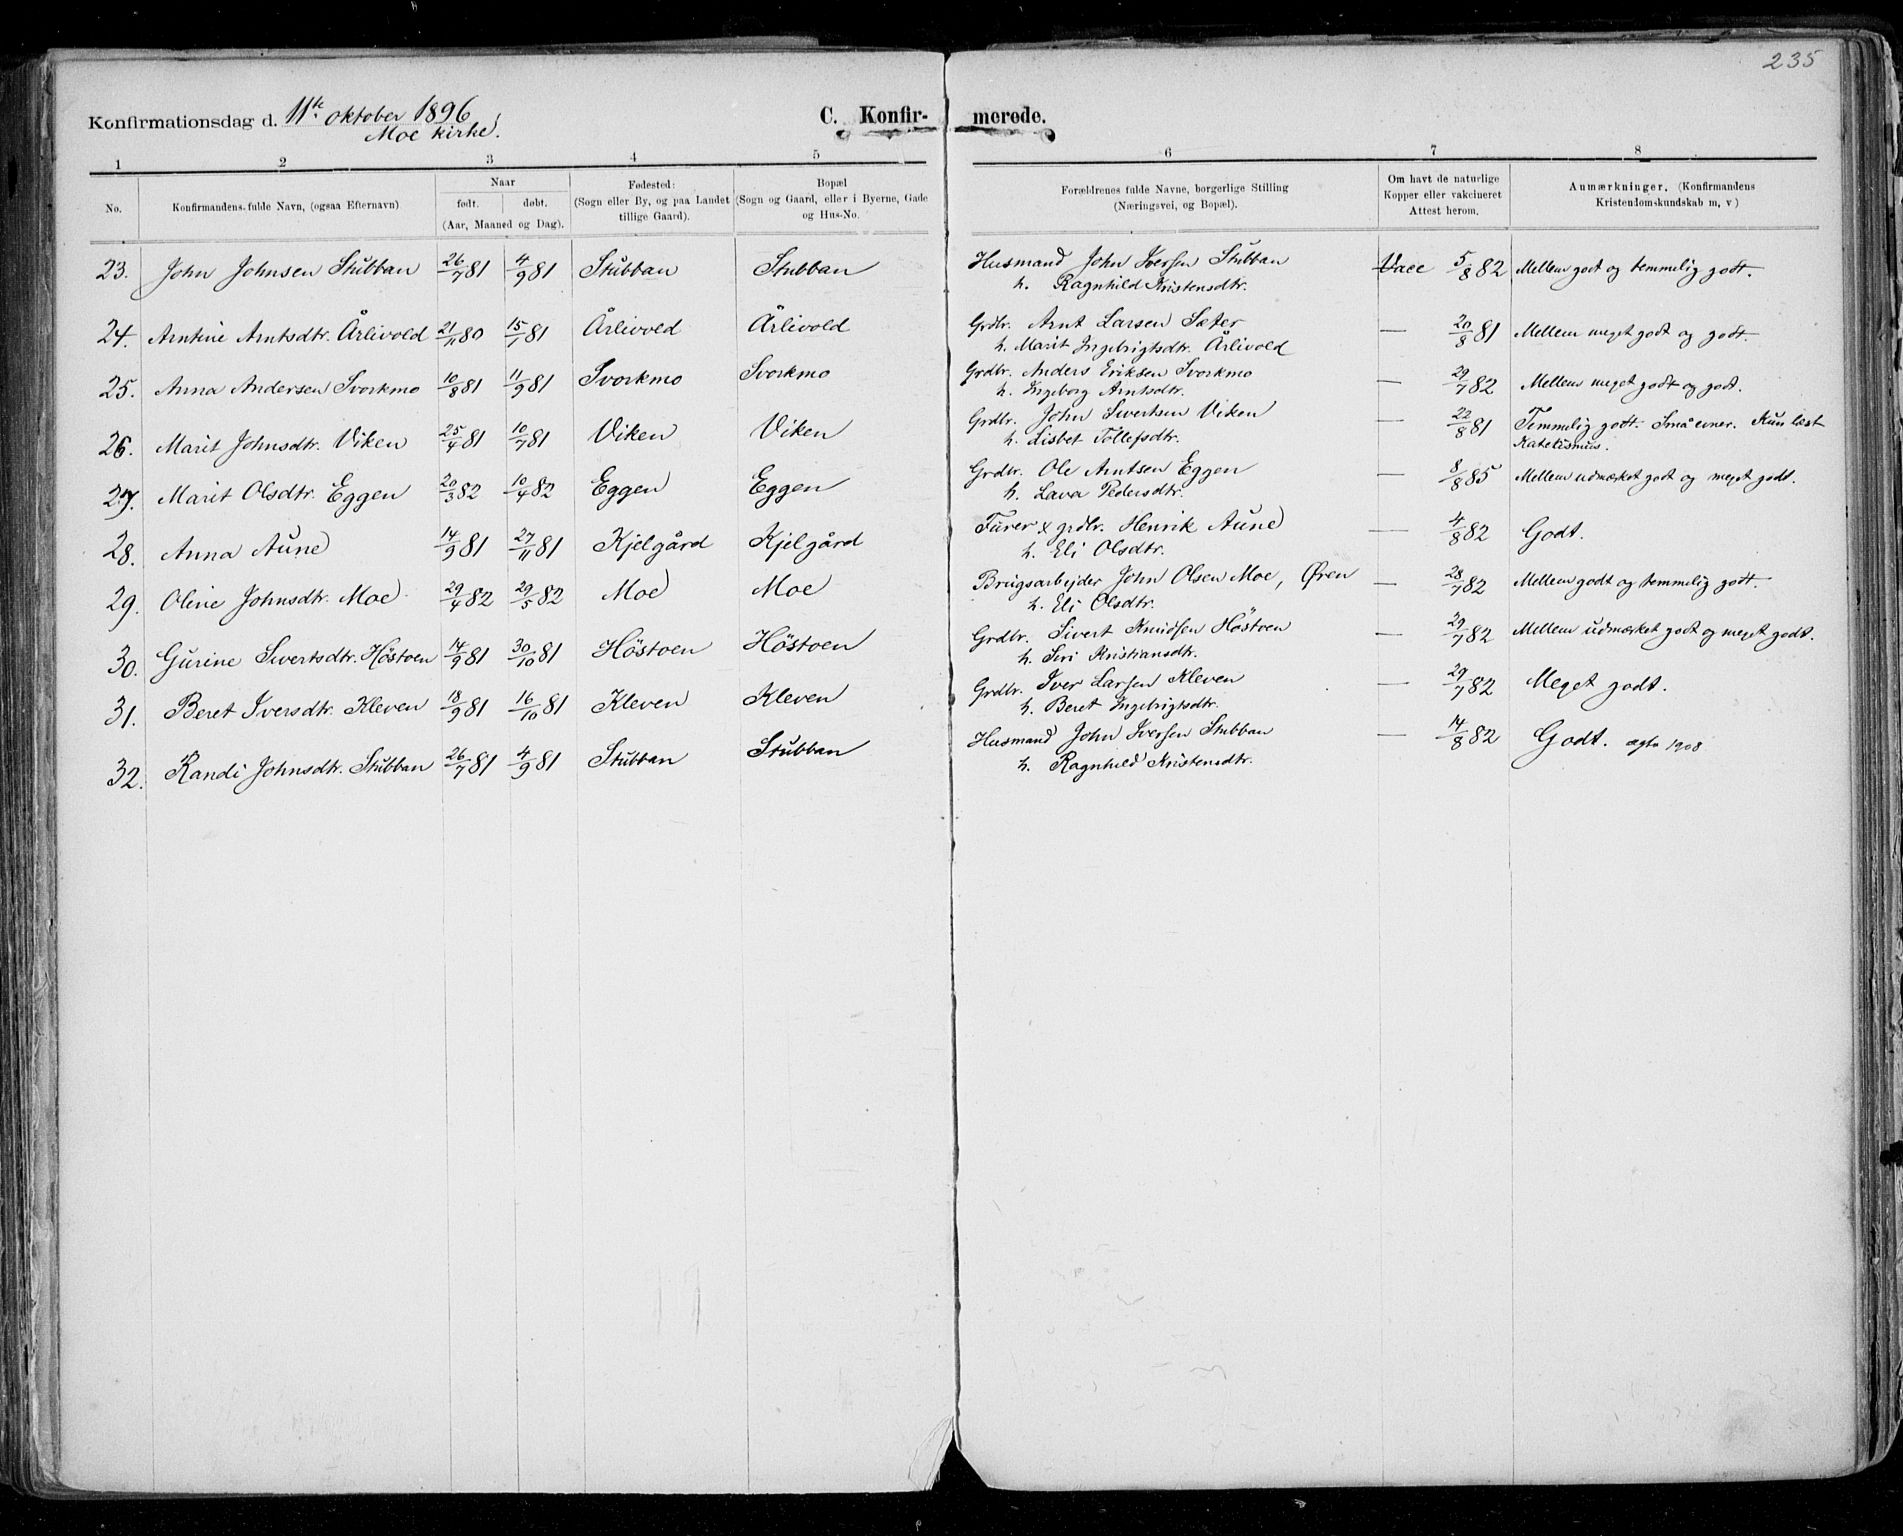 235
Konfirmationsdag d. 11te oktober 1896
Moe kirke.
C. Konfir- merede.
1 2 3 4 5 6 7 8
No. Konfirmandens fulde Navn, (ogsaa Efternavn) Naar født. døbt. (Aar, Maaned og Dag). Fødested: (Sogn eller By, og paa Landet tillige Gaard). Bopæl (Sogn og Gaard, eller i Byerne, Gade og Hus-No. Forældrenes fulde Navne, borgerlige Stilling (Næringsvei, og Bopæl). Om havt de naturlige Kopper eller vakcineret Attest herom. Anmærkninger. (Konfirmandens Kristendomskundskab m, v)
23. John Johnsen Stubban 26/7 81 4/9 81 Stubban Stubban Husmand John Iversen Stubban Vacc 5/8 82 Mellem godt og temmelig godt.
h. Ragnhild Kristensdtr.
24. Arntine Arntsdtr. Årlivold 21/11 80 15/1 81 Årlivold Årlivold Grdbr. Arnt Larsen Sæter — 20/8 81 Mellem meget godt og godt.
h. Marit Ingebrigtsdtr. Årlivold
25. Anna Andersen Svorkmo 10/8 81 11/9 81 Svorkmo Svorkmo Grdbr. Anders Eriksen Svorkmo — 29/7 82 Mellem meget godt og godt.
h. Ingeborg Arntsdtr.
26. Marit Johnsdtr. Viken 25/4 81 10/7 81 Viken Viken Grdbr. John Sivertsen Viken — 22/8 81 Temmelig godt. Små evner. Kun læst
h. Lisbet Tollefsdtr. Katekismus.
27. Marit Olsdtr. Eggen 20/3 82 10/4 82 Eggen Eggen Grdbr. Ole Arntsen Eggen — 8/8 85 Mellem udmærket godt og meget godt.
h. Lava Pedersdtr.
28. Anna Aune 14/9 81 27/11 81 Kjelgård Kjelgård Furer x grdbr. Henrik Aune — 4/8 82 Godt.
h. Eli Olsdtr.
29. Oline Johnsdtr. Moe 29/4 82 29/5 82 Moe Moe Brugsarbejder John Olsen Moe, Øren — 28/7 82 Mellem godt og temmelig godt.
h. Eli Olsdtr.
30. Gurine Sivertsdtr. Höstoen 14/9 81 30/10 81 Höstoen Höstoen Grdbr. Sivert Knudsen Höstoen — 29/7 82 Mellem udmærket godt og meget godt.
h. Siri Kristiansdtr.
31. Beret Iversdtr. Kleven 18/9 81 16/10 81 Kleven Kleven Grdbr. Iver Larsen Kleven — 29/7 82 Meget godt.
h. Beret Ingebrigtsdtr.
32. Randi Johnsdtr. Stubban 26/7 81 4/9 81 Stubban Stubban Husmand John Iversen Stubban — 14/8 82 Godt. ægtv 1908
h. Ragnhild Kristensdtr.